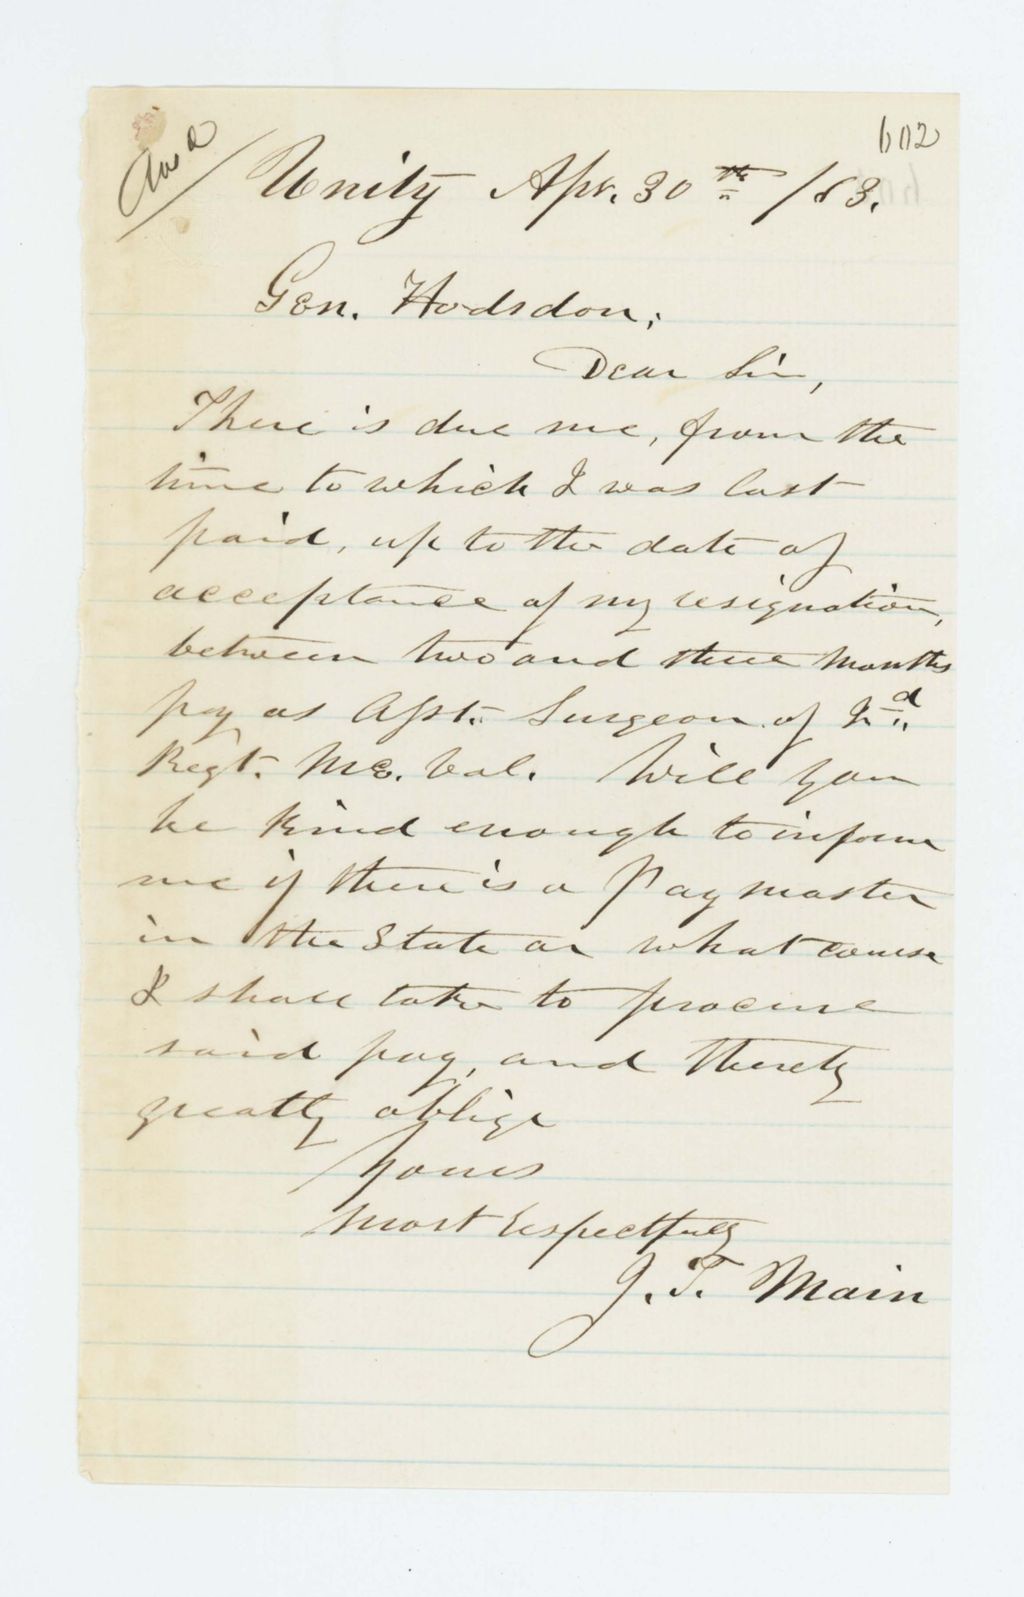 602
Ansd
Unity Apr. 30th /63.
Gen. Hodsdon;
Dear Sir,
There is due me, from the
time to which I was last
paid, up to the date of
acceptance of my resignation,
between two and three months
pay as Asst. Surgeon of 2nd
Regt. Me. Vol. Will you
be kind enough to inform
me if there is a Paymaster
in the State or what course
I shall take to procure
said pay, and thereby
greatly oblige
Yours
Most respectfully
J. T. Main